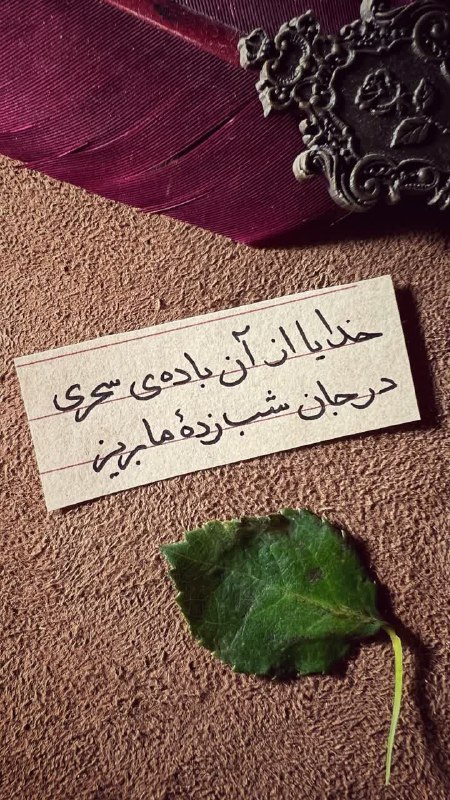 خدایا از آن باده‌ی سحری
در جان شب زدهٔ ما بریز